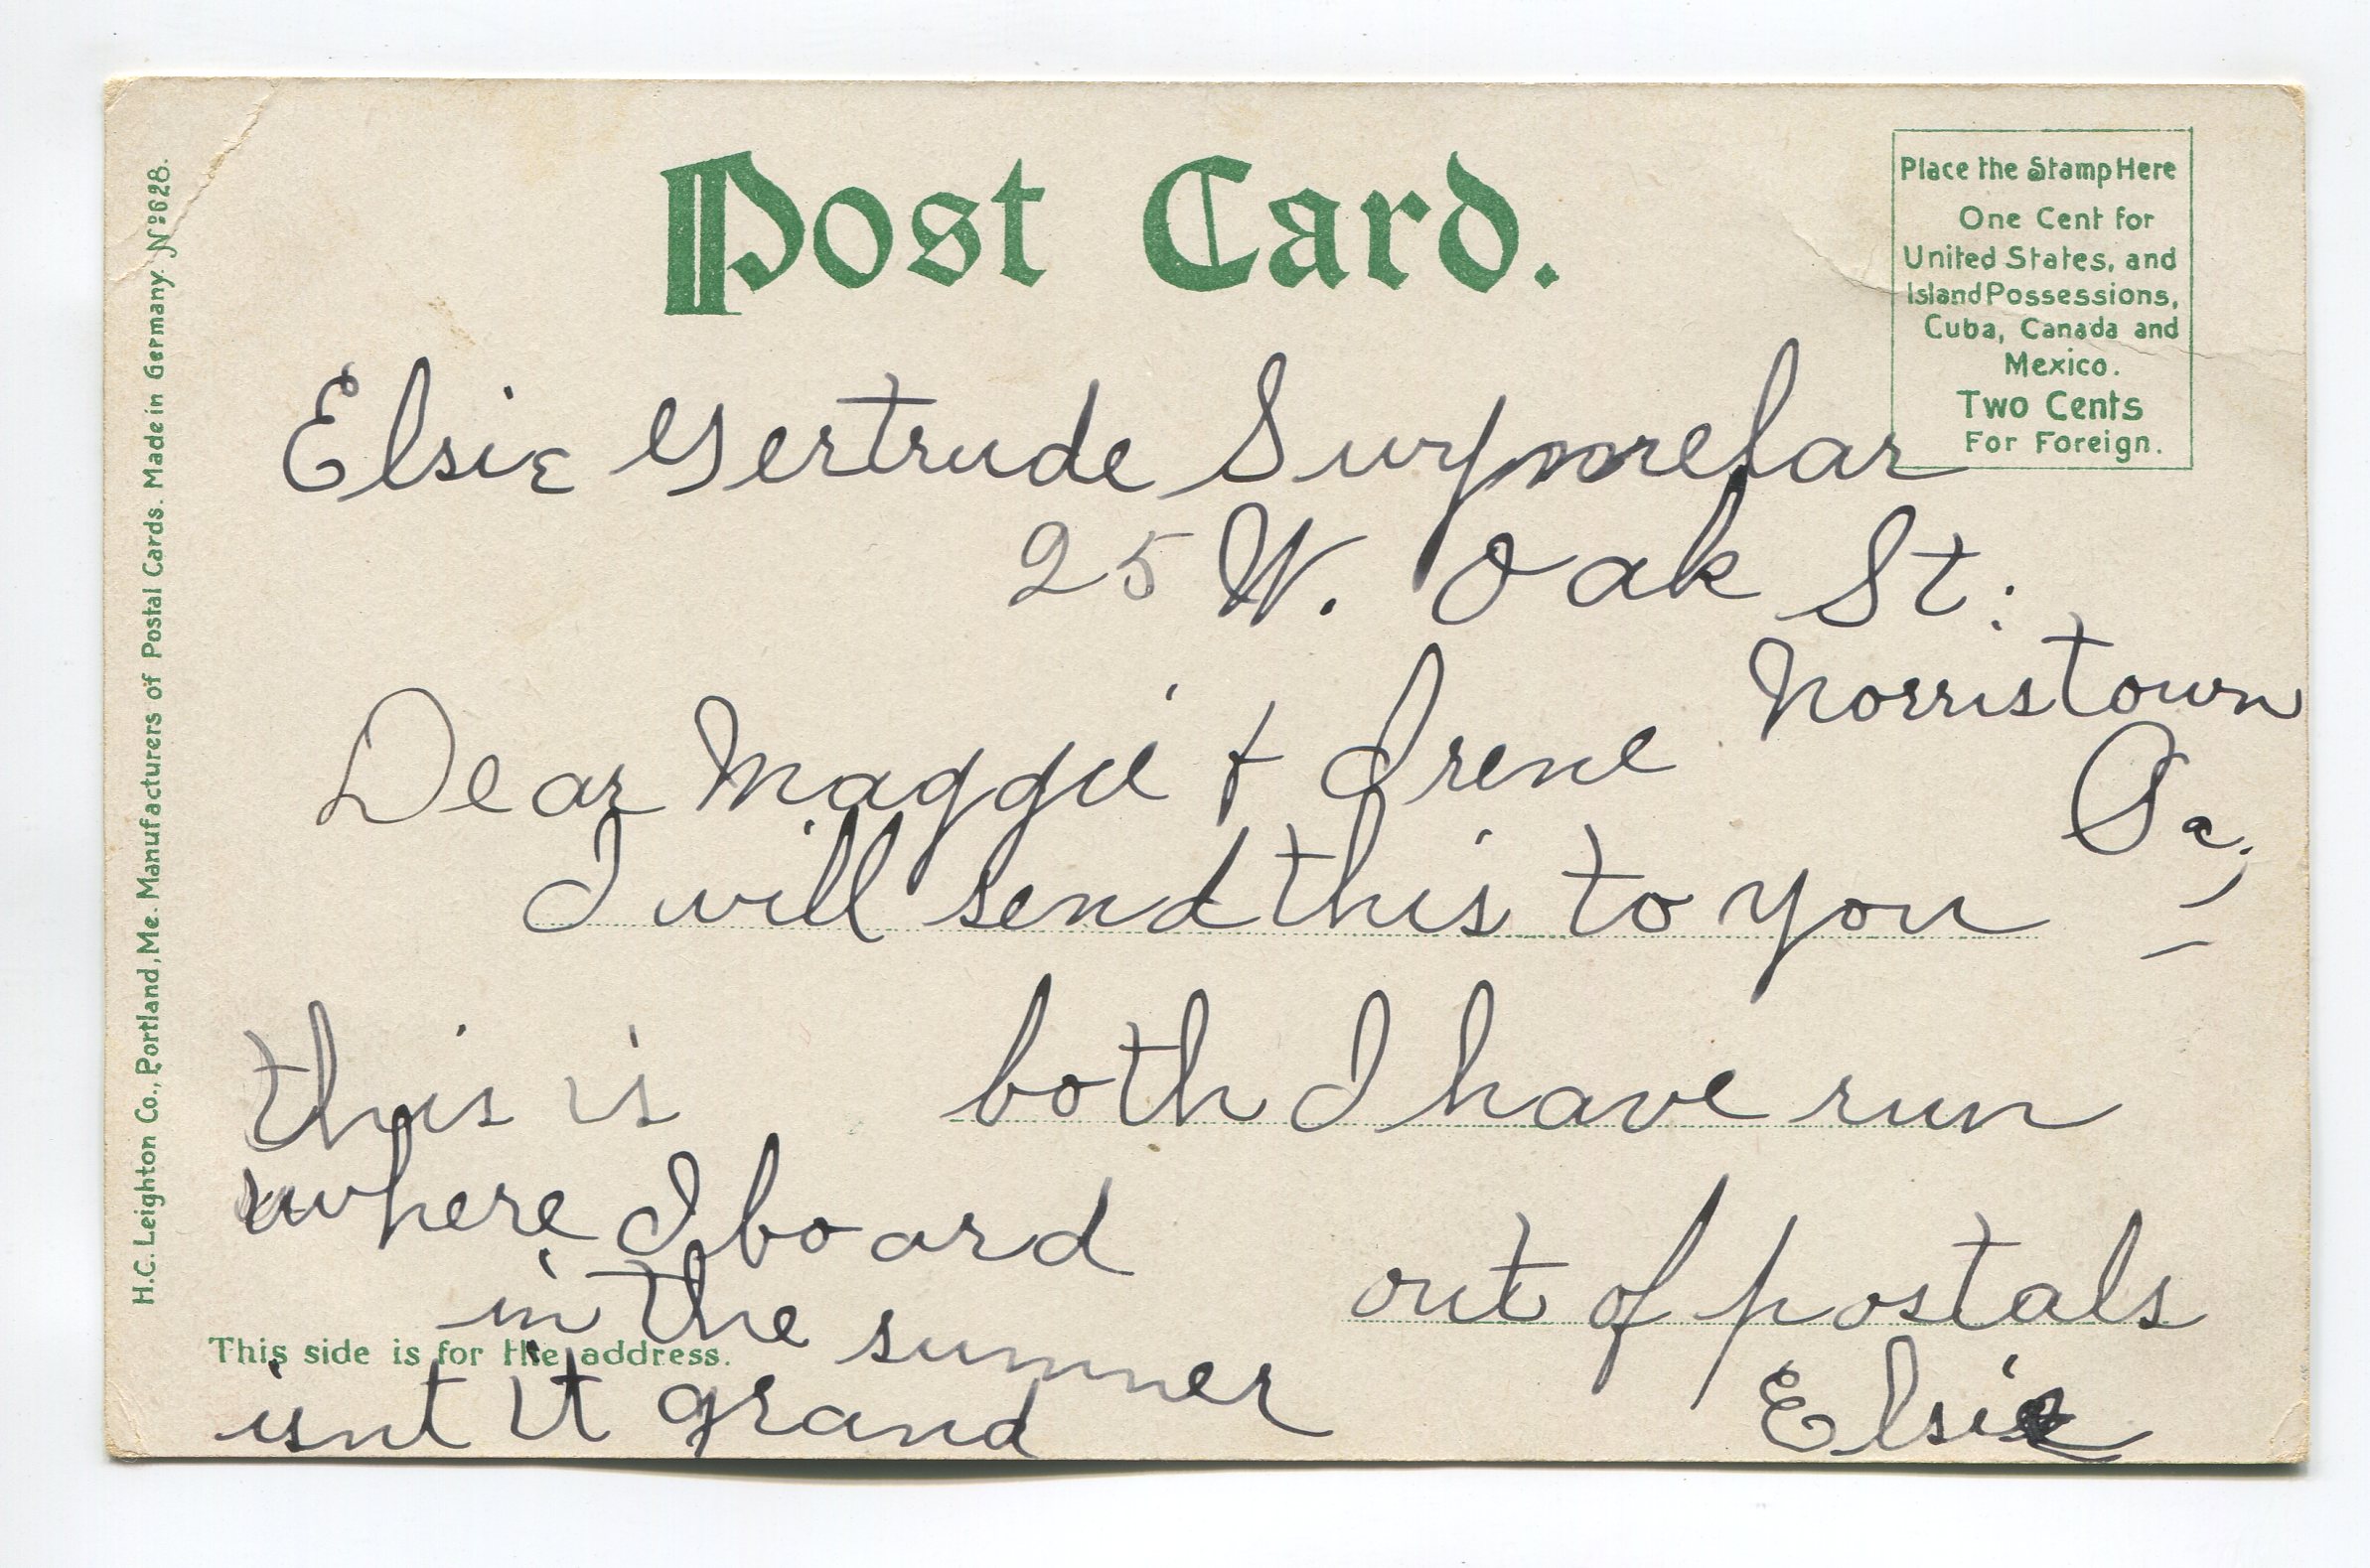 Post Card.
Place the Stamp Here
One Cent for
United States, and
Island Possessions,
Cuba, Canada and
Mexico.
Two Cents
For Foreign.
H.C. Leighton Co., Portland, Me. Manufacturers of Postal Cards. Made in Germany. Nº 628.
Elsie Gertrude
25 W. Oak St.
Norristown
Pa.
Dear Maggie + Irene
I will send this to you
both I have run
out of postals
Elsie
this is
where I board
in the summer
isnt it grand
This side is for the address.